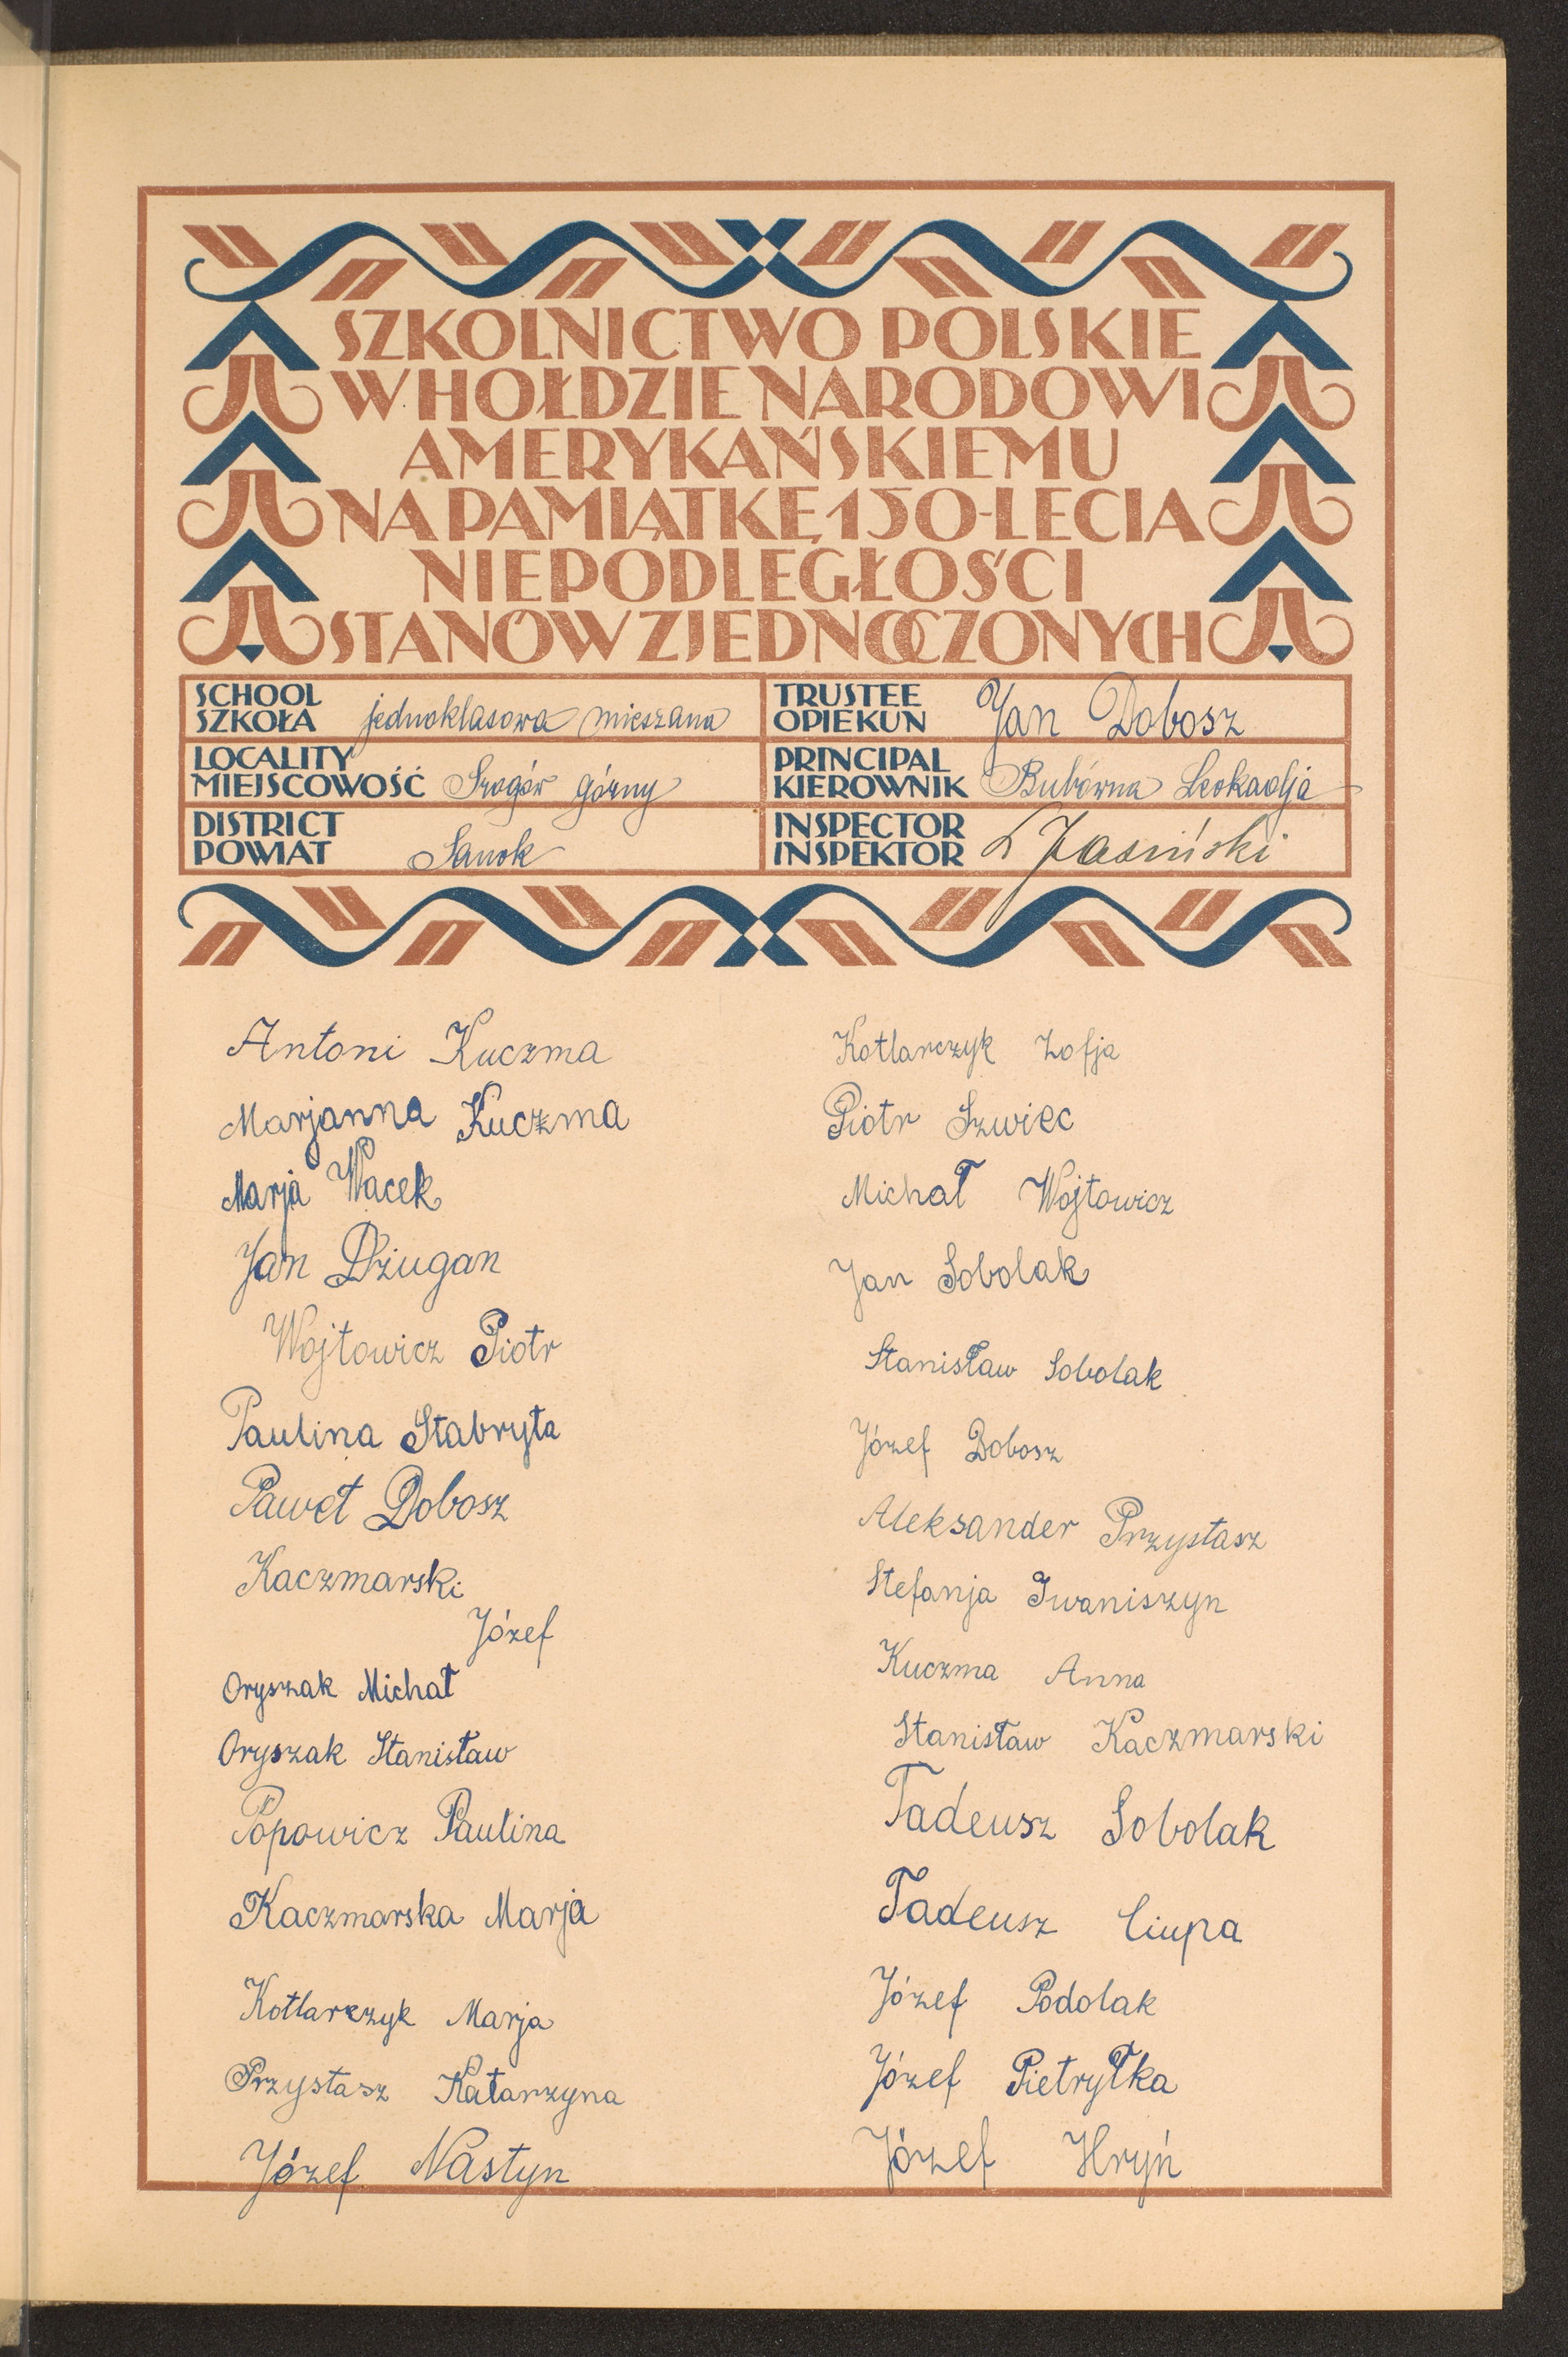 SZKOLNICTWO POLSKIE
W HOŁDZIE NARODOWI
AMERYKAŃSKIEMU
NA PAMIĄTKĘ 150-LECIA
NIEPODLEGŁOŚCI
STANÓW ZJEDNOCZONYCH
SCHOOL
SZKOŁA jednoklasowa mieszana
TRUSTEE
OPIEKUN Jan Dobosz
LOCALITY
MIEJSCOWOŚĆ Srogów górny
PRINCIPAL
KIEROWNIK Bubówna Leokadja
DISTRICT
POWIAT Sanok
INSPECTOR
INSPEKTOR Jasiński
Antoni Kuczma
Marjanna Kuczma
Marja Wacek
Jan Dżugan
Wojtowicz Piotr
Paulina Stabryła
Paweł Dobosz
Kaczmarski
Józef
Oryszak Michał
Oryszak Stanisław
Popowicz Paulina
Kaczmarska Marja
Kotlarczyk Marja
Przystasz Katarzyna
Józef Nastyn
Kotlarczyk Zofja
Piotr Szwiec
Michał Wojtowicz
Jan Sobolak
Stanisław Sobolak
Józef Dobosz
Aleksander Przystasz
Stefanja Iwaniszyn
Kuczma Anna
Stanisław Kaczmarski
Tadeusz Sobolak
Tadeusz Ciupa
Józef Podolak
Józef Pietryłka
Józef Hryń